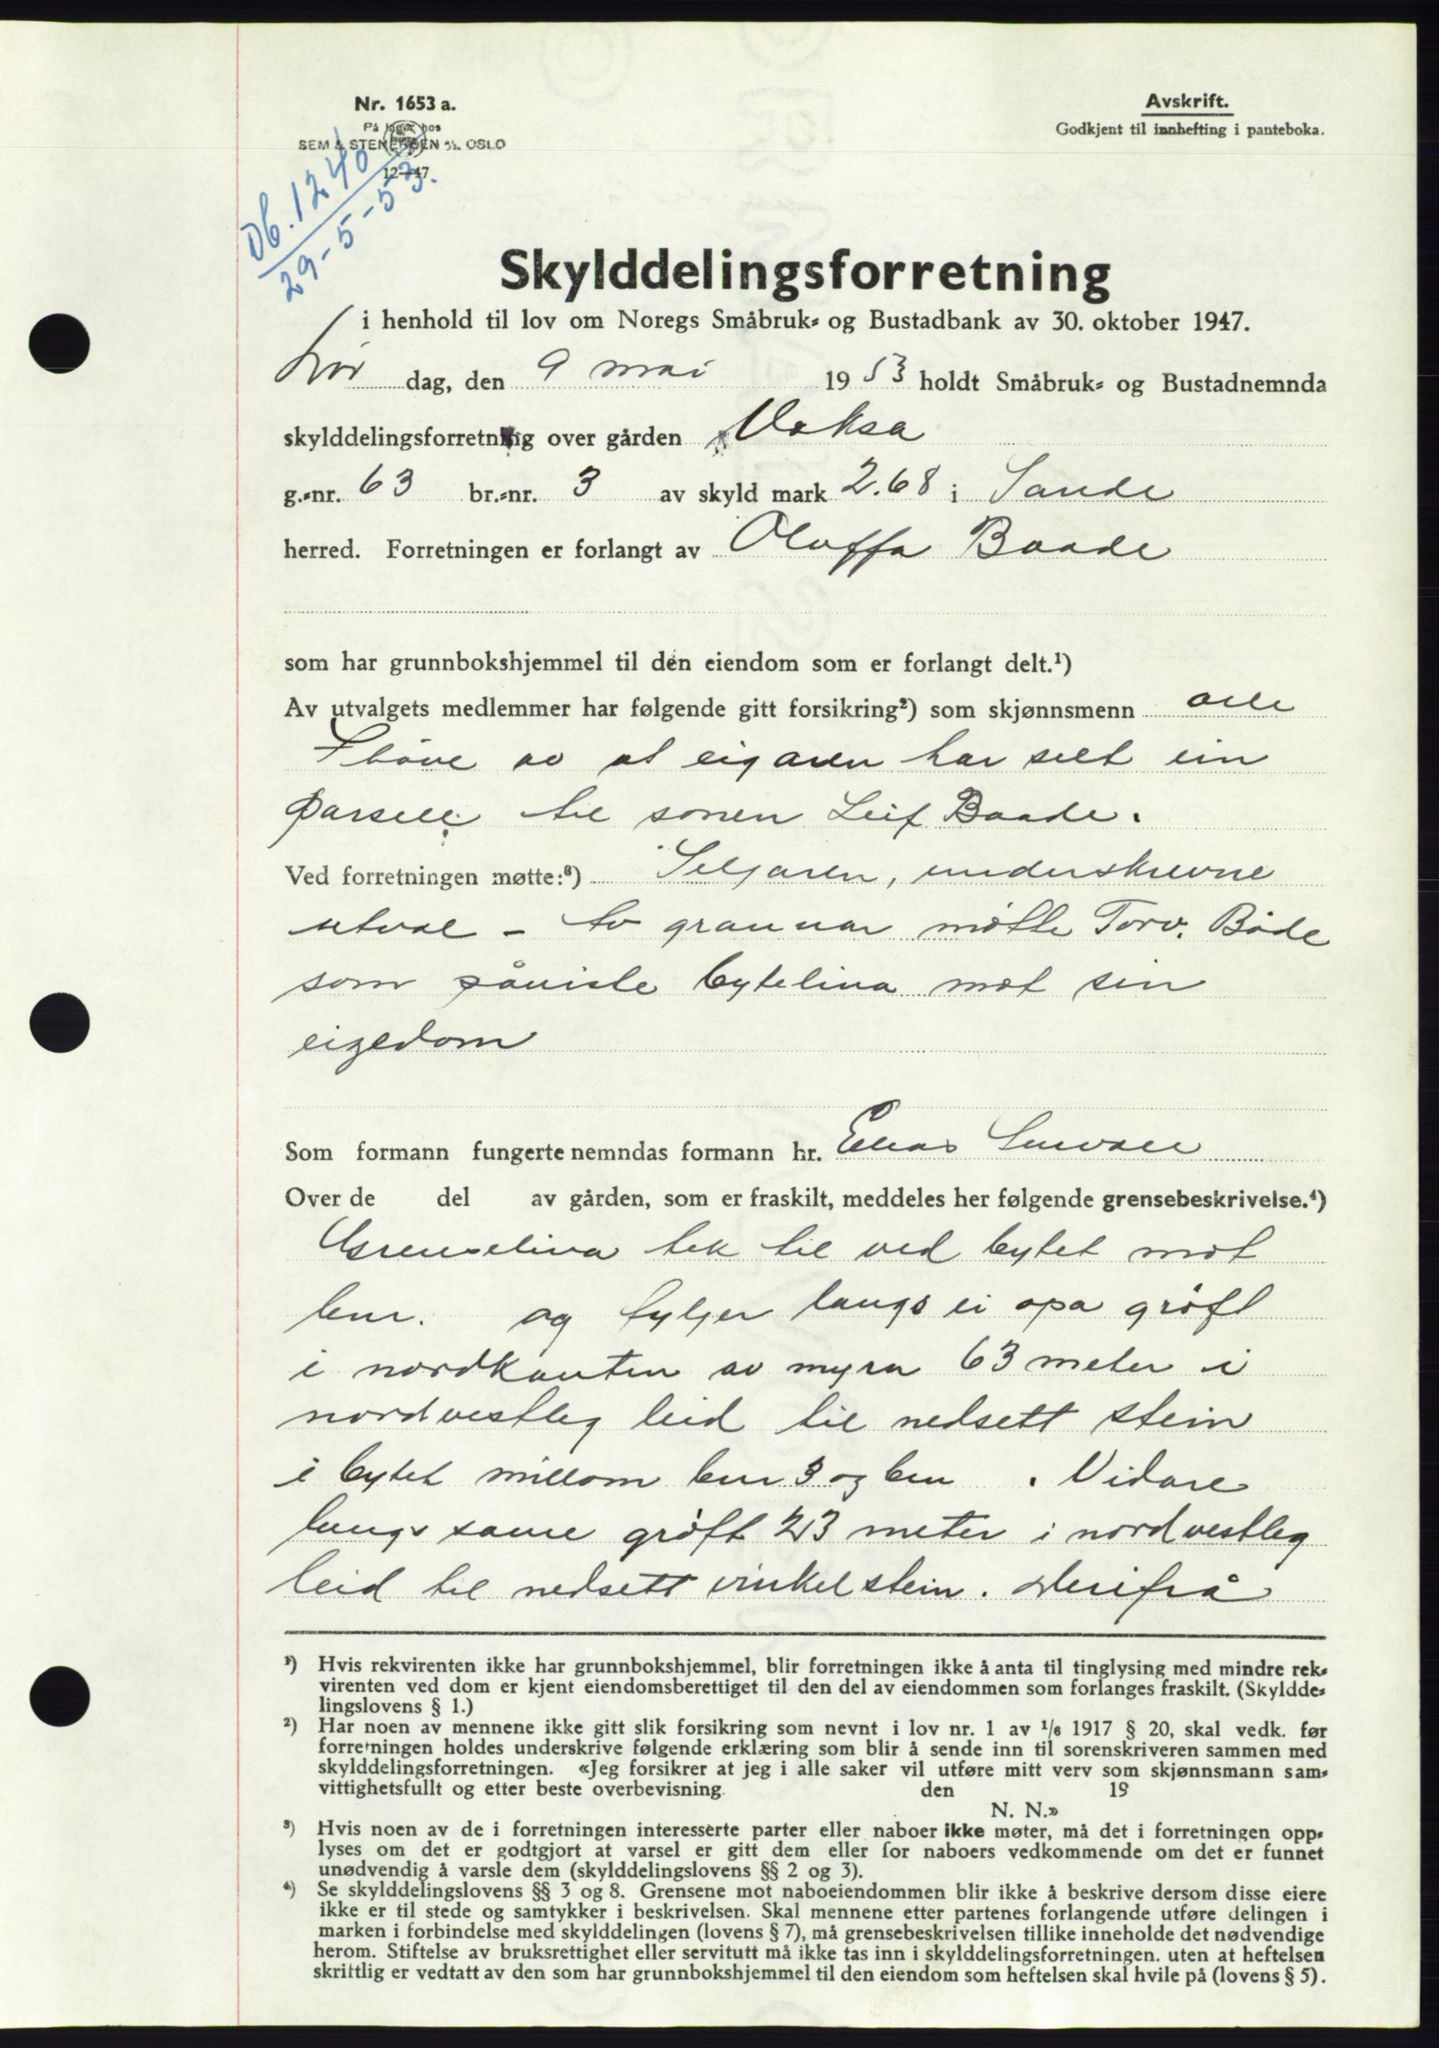 Nr. 1653 a.
På lager hos
SEM & STENERSEN A/S OSLO
12–47
Db. 1240
29-5-53.
Avskrift.
Godkjent til innhefting i panteboka.
Skylddelingsforretning
i henhold til lov om Noregs Småbruk- og Bustadbank av 30. oktober 1947.
Lør dag, den 9 mai 1953 holdt Småbruk- og Bustadnemnda
skylddelingsforretning over gården Voksa
g.-nr. 63 br.-nr. 3 av skyld mark 2.68 i Sande
herred. Forretningen er forlangt av Oluffa Baade
som har grunnbokshjemmel til den eiendom som er forlangt delt.¹)
Av utvalgets medlemmer har følgende gitt forsikring²) som skjønnsmenn alle
I høve av at eigaren har selt ein
parsell til sonen Leif Baade.
Ved forretningen møtte:³) Seljaren, underskrevne
utval – to grannar møtte Torv. Både
som påviste bytelina mot sin
eigedom
Som formann fungerte nemndas formann hr. Elias
Over de del av gården, som er fraskilt, meddeles her følgende grensebeskrivelse.⁴)
Grenselina tek til ved bytet mot
bnr. og fylgjer langs ei opa grøft
i nordkanten av myra 63 meter i
nordvestleg leid til nedsett stein
i bytet millom bnr 3 og bnr . Vidare
langs same grøft 23 meter i nordvestleg
leid til nedsett vinkelstein. Derifrå
¹) Hvis rekvirenten ikke har grunnbokshjemmel, blir forretningen ikke å anta til tinglysing med mindre rek-
virenten ved dom er kjent eiendomsberettiget til den del av eiendommen som forlanges fraskilt. (Skyldde-
lingslovens § 1.)
²) Har noen av mennene ikke gitt slik forsikring som nevnt i lov nr. 1 av 1/6 1917 § 20, skal vedk. før
forretningen holdes underskrive følgende erklæring som blir å sende inn til sorenskriveren sammen med
skylddelingsforretningen. «Jeg forsikrer at jeg i alle saker vil utføre mitt verv som skjønnsmann sam-
vittighetsfullt og etter beste overbevisning. den 19
N. N.»
³) Hvis noen av de i forretningen interesserte parter eller naboer ikke møter, må det i forretningen opp-
lyses om det er godtgjort at varsel er gitt dem eller for naboers vedkommende om det er funnet
unødvendig å varsle dem (skylddelingslovens §§ 2 og 3).
⁴) Se skylddelingslovens §§ 3 og 8. Grensene mot naboeiendommen blir ikke å beskrive dersom disse eiere
ikke er til stede og samtykker i beskrivelsen. Skal mennene etter partenes forlangende utføre delingen i
marken i forbindelse med skylddelingen (lovens § 7), må grensebeskrivelsen tillike inneholde det nødvendige
herom. Stiftelse av bruksrettighet eller servitutt må ikke tas inn i skylddelingsforretningen. uten at heftelsen
skriftlig er vedtatt av den som har grunnbokshjemmel til den eiendom som heftelsen skal hvile på (lovens § 5).